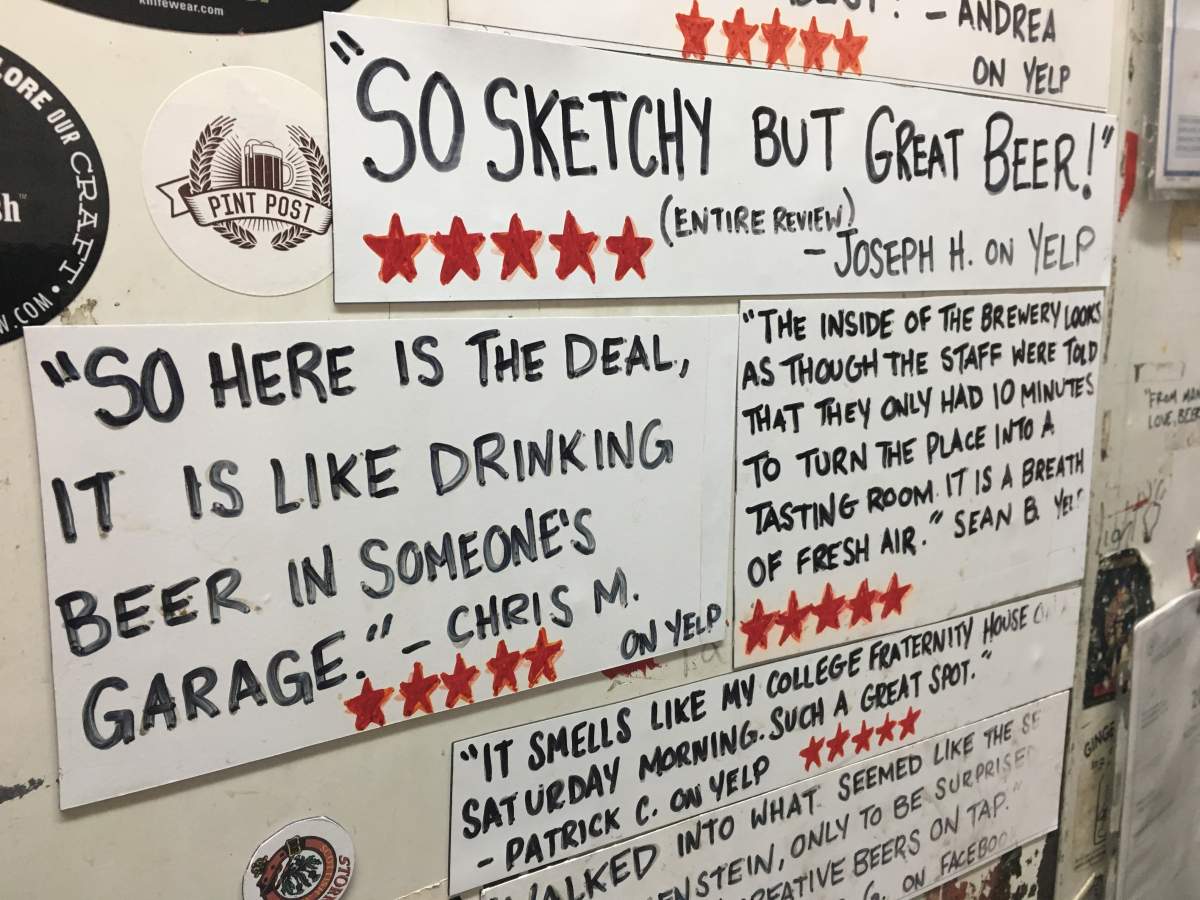 knifewear.com
- ANDREA
ON YELP
LORE OUR CRAFT
.COM
PINT POST
"SO SKETCHY BUT GREAT BEER!"
(ENTIRE REVIEW)
- JOSEPH H. ON YELP
"SO HERE IS THE DEAL,
IT IS LIKE DRINKING
BEER IN SOMEONE'S
GARAGE." - CHRIS M.
ON YELP
"THE INSIDE OF THE BREWERY LOOKS
AS THOUGH THE STAFF WERE TOLD
THAT THEY ONLY HAD 10 MINUTES
TO TURN THE PLACE INTO A
TASTING ROOM. IT IS A BREATH
OF FRESH AIR." SEAN B. YELP
"FROM MAN
LOVE, BEER
"IT SMELLS LIKE MY COLLEGE FRATERNITY HOUSE
SATURDAY MORNING. SUCH A GREAT SPOT."
- PATRICK C. ON YELP
WALKED INTO WHAT SEEMED LIKE THE SE
ENSTEIN, ONLY TO BE SURPRISE
REATIVE BEERS ON TAP."
G. ON FACEBOO
GINGE
STOR